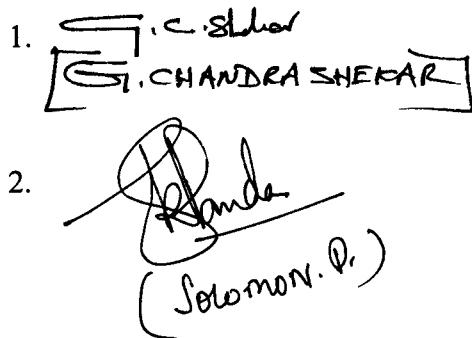 1. G.C.Shekar
[G. CHANDRA SHEKAR]
2.
(Solomon. P.)